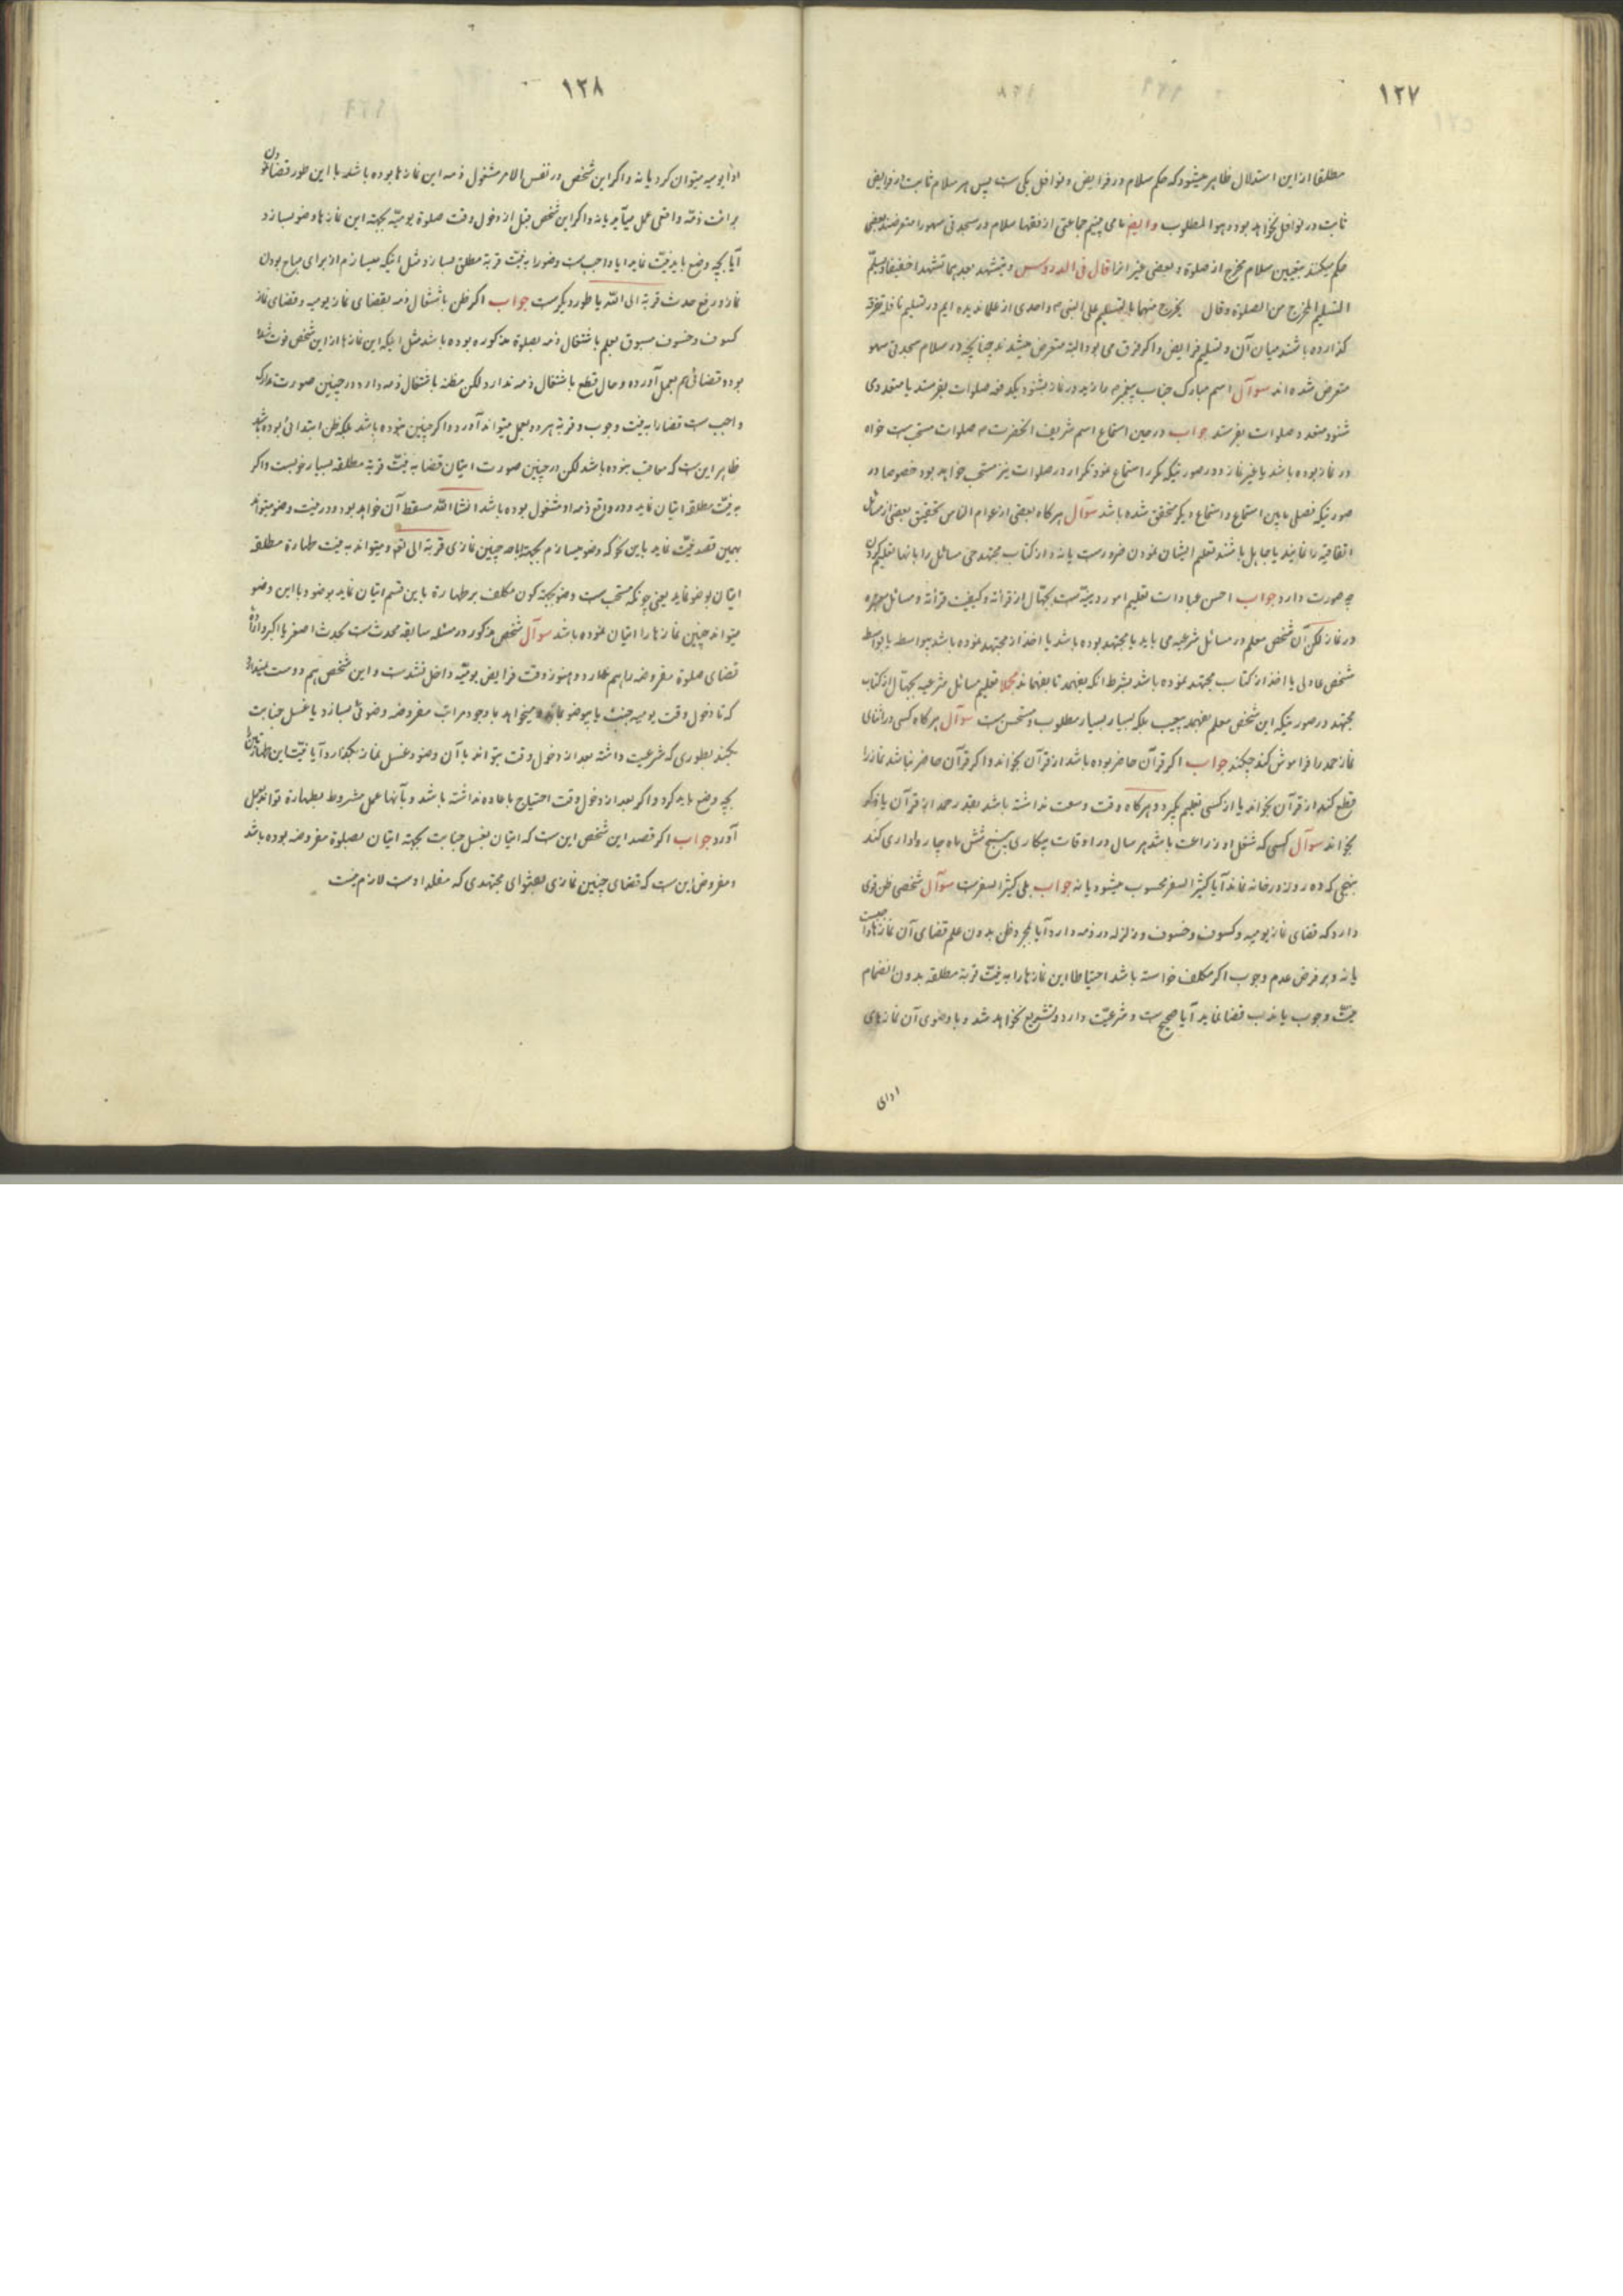 ۱۲۷
مطلقا از این استدلال ظاهر میشود که حکم سلام در فرایض و نوافل یکی ست پس هر سلام ثابت در فرایض
ثابت در نوافل بخواهد بود و هو المطلوب و ایضا می بینیم جماعتی از فقها سلام در سجدتی سهو را متعرضند بعضی
حکم میکنند بتعیین سلام مخرج از صلوة و بعضی غیر انرا قال فی الدروس و یتشهد بعدهما تشهدا خفیفا و یسلم
التسلیم المخرج من الصلوة و قال یخرج منهما بالتسلیم علی النبی ص و احدی از علما ندیده ایم در تسلیم نافله تفرقه
کذارده باشند میان آن و تسلیم فرایض و اکر فرق می بود البته متعرض میشدند چنانچه در سلام سجدتی سهو
متعرض شده اند سوآل اسم مبارک جناب پیغمبر ص را زید در نماز بشنود یکدفعه صلوات بفرستد یا متعددی
شنود متعدد صلوات بفرستد جواب در حین استماع اسم شریف آنحضرت ص صلوات مستحب ست خواه
در نماز بوده باشد یا غیر نماز و در صورتیکه مکرر استماع نمود تکرار در صلوات نیز مستحب خواهد بود خصوصا در
صورتیکه فصلی مابین استماع و استماع دیکر متحقق شده باشد سوآل هرکاه بعضی از عوام الناس تحقیق بعضی از مسائل
اتفاقیه را نمایند یا جاهل باشند تعلیم ایشان نمودن ضرورست یا نه و از کتاب مجتهد حی مسائل را بانها تعلیم کردن
چه صورت دارد جواب احسن عبادات تعلیم امور دینیه ست بجهال از قرائة و کیفیت قرائة و مسائل معتبره
در نماز لکن آن شخص معلم در مسائل شرعیه می باید یا مجتهد بوده باشد یا اخذ از مجتهد نموده باشد بیواسطه یا بواسطه
شخص عادلی یا اخذ از کتاب مجتهد نموده باشد بشرط انکه بفهمد تا بفهماند مجملا تعلیم مسائل شرعیه بجهال از کتاب
مجتهد در صورتیکه این شخص معلم بفهمد بیعیب بلکه بسیار بسیار مطلوب و مستحسن ست سوآل هرکاه کسی در اثنای
نماز حمد را فراموش کند چکند جواب اکر قرآن حاضر بوده باشد از قرآن بخواند و اکر قرآن حاضر نباشد نماز را
قطع کند از قرآن بخواند یا از کسی تعلیم بکیرد و هرکاه وقت وسعت نداشته باشد بقدر حمد از قرآن یا ذکر
بخواند سوآل کسی که شغل او زراعت باشد هر سال در اوقات بیکاری پنج شش ماه چارواداری کند
بنهجی که ده روز در خانه نماند آیا کثیر السفر محسوب میشود یا نه جواب بلی کثیر السفرست سوآل شخصی ظن قوی
دارد که قضای نماز یومیه و کسوف و خسوف و زلزله در ذمه دارد آیا بمجرد ظن بدون علم قضای آن نمازها واجبست
یا نه و بر فرض عدم وجوب اکر مکلف خواسته باشد احتیاطا این نمازها را به نیت قربة مطلقه بدون انضمام
نیت وجوب یا ندب قضا نماید آیا صحیح ست و شرعیت دارد و تشریع نخواهد شد و با وضوی آن نمازهای
ادای
۱۲۸
اداء یومیه میتوان کرد یا نه و اکر این شخص در نفس الامر مشغول ذمه این نمازها بوده باشد با این طور قضا نمودن
برائت ذمه واقعی عمل میآید یا نه و اکر این شخص قبل از دخول وقت صلوة یومیه بجهة این نمازها وضو بسازد
آیا بچه وضع باید نیت نماید ایا واجب ست وضو را به نیت قربة مطلق بسازد مثل اینکه میسازم از برای مباح بودن
نماز و رفع حدث قربة الی الله یا طور دیکرست جواب اکر ظن باشتغال ذمه بقضای نماز یومیه و قضای نماز
کسوف و خسوف مسبوق بعلم باشتغال ذمه بصلوة مذکوره بوده باشد مثل اینکه این نمازها از این شخص فوت شده
بوده قضائی هم بعمل آورده و حال قطع باشتغال ذمه ندارد لکن مظنه باشتغال ذمه دارد در چنین صورت تدارک
واجب ست قضا را به نیت وجوب و قربة هر دو بعمل میتواند آورد و اکر چنین نبوده باشد بلکه ظن ابتدائی بوده باشد
ظاهر این ست که معاقب نبوده باشد لکن در چنین صورت اتیان قضا به نیت قربة مطلقه بسیار خوبست و اکر
به نیت مطلقه اتیان نماید و در واقع ذمه او مشغول بوده باشد انشاالله مسقط آن خواهد بود و در نیت وضو میتواند
بهمین قصد نیت نماید باین نحو که وضو میسازم بجهة اباحه چنین نمازی قربة الی الله و میتواند به نیت طهارة مطلقه
اتیان بوضو نماید یعنی چونکه مستحب ست وضو بجهة کون مکلف بر طهارة باین قسم اتیان نماید بوضو و با این وضو
میتواند چنین نمازها را اتیان نموده باشد سوآل شخص مذکور در مسئله سابقه محدث ست بحدث اصغر یا اکبر و اراده
قضای صلوة مفروضه را هم ندارد و هنوز وقت فرایض یومیه داخل نشدست و این شخص هم دوست نمیدارد
که تا دخول وقت یومیه جنب یا بیوضو بماند میخواهد با وجود مراتب مفروضه وضوئی بسازد یا غسل جنابت
بکند بطوری که شرعیت داشته بعد از دخول وقت بتواند با آن وضو و غسل نماز بکذارد آیا نیت این طهارتین را
بچه وضع باید کرد و اکر بعد از دخول وقت احتیاج باعاده نداشته باشد و بآنها عمل مشروط بطهارة تواند بعمل
آورد جواب اکر قصد این شخص این ست که اتیان بغسل جنابت بجهة اتیان بصلوة مفروضه بوده باشد
و مفروض این ست که قضای چنین نمازی بفتوای مجتهدی که مقلد اوست لازم نیست